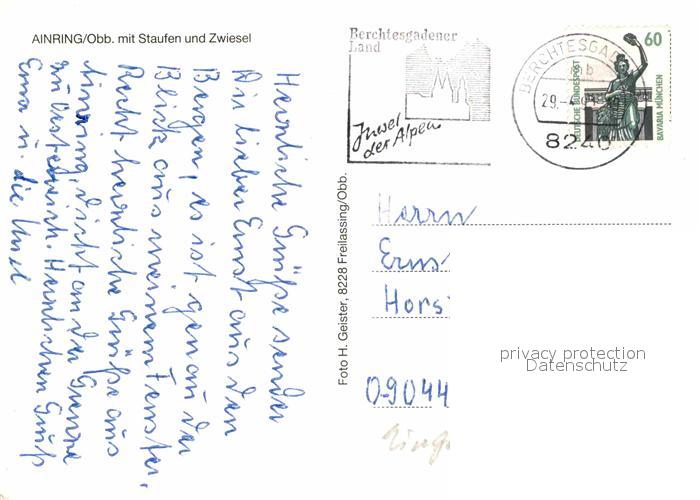 AINRING/Obb. mit Staufen und Zwiesel
Herrliche Grüße sendet
Dir lieber Ernst aus den
Bergen, es ist genau der
Blick aus meinem Fenster.
Recht herrliche Grüße aus
Ainring, dicht an der Grenze
zu Österreich. Herzlichen Gruß
Erna u. die
Foto H. Geister, 8228 Freilassing/Obb.
Berchtesgadener
Land
Juwel
der Alpen
BERCHTESGAD
29.-4
8240
60
DEUTSCHE BUNDESPOST
BAVARIA MÜNCHEN
Herrn
Erns
Hors
O-9044
privacy protection
Datenschutz